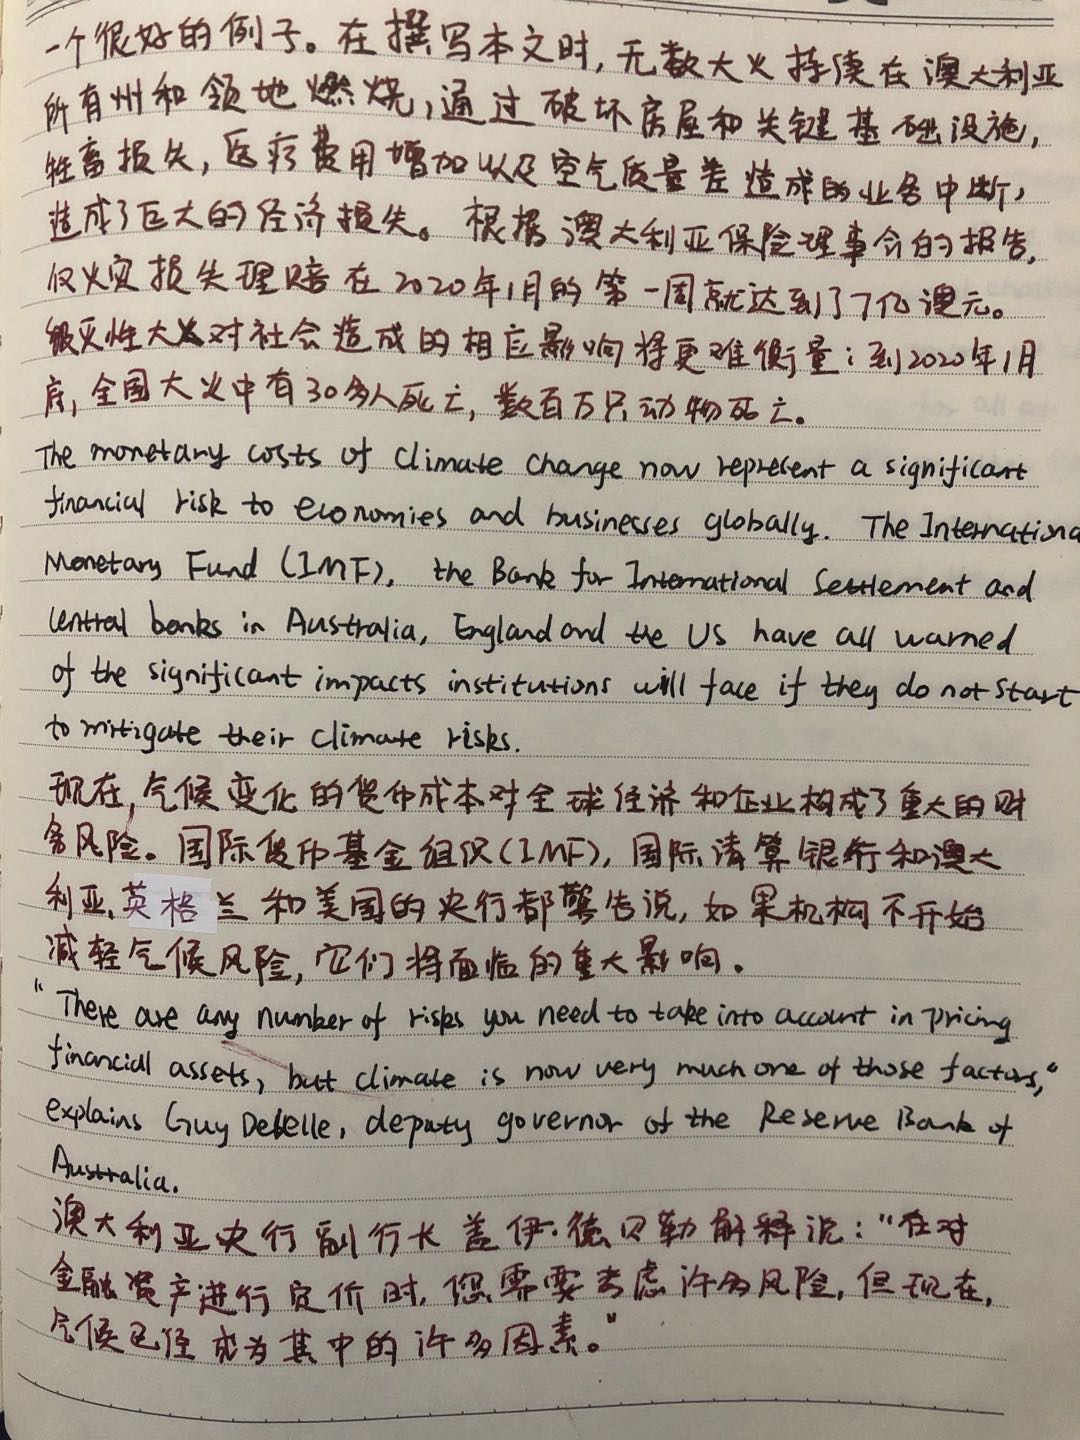 一个很好的例子。在撰写本文时,无数大火持续在澳大利亚
所有州和领地燃烧,通过破坏房屋和关键基础设施,
牲畜损失,医疗费用增加以及空气质量差造成的业务中断,
造成了巨大的经济损失。根据澳大利亚保险理事会的报告,
仅火灾损失理赔在2020年1月的第一周就达到了7亿澳元。
毁灭性大火对社会造成的相应影响将更难衡量:到2020年1月
底,全国大火中有30多人死亡,数百万只动物死亡。
The monetary costs of climate change now represent a significant
financial risk to economies and businesses globally. The Internationa
Monetary Fund (IMF), the Bank for International Settlement and
central banks in Australia, England and the US have all warned
of the significant impacts institutions will face if they do not start
to mitigate their climate risks.
现在,气候变化的货币成本对全球经济和企业构成了重大的财
务风险。国际货币基金组织(IMF),国际清算银行和澳大
利亚,英格兰和美国的央行都警告说,如果机构不开始
减轻气候风险,它们将面临的重大影响.
"There are any number of risks you need to take into account in pricing
financial assets, but climate is now very much one of those factors,"
explains Guy Debelle, deputy governor of the Reserve Bank of
Australia.
澳大利亚央行副行长盖伊·德贝勒解释说:"在对
金融资产进行定价时,您需要考虑许多风险,但现在,
气候已经成为其中的许多因素。"